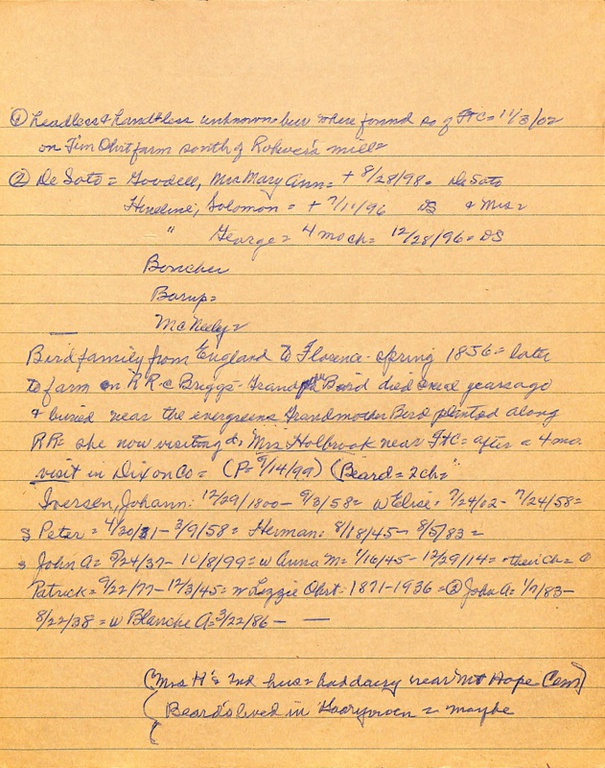 ① Headless & handless unknown bur where found so of Ft C = 11/3/02
on Jim Ohrt farm south of Rohwer's mill =
② De Soto = Goodell, Mrs Mary Ann = + 8/28/98 = De Soto
Hineline, Solomon = + 7/11/96 DS & Mrs =
" George = 4 mo ch = 12/28/96 = DS
Boucher
Borup =
McNeely =
Bird family from England to Florence - spring 1856 = later
to farm on RR = c Briggs - Grandpa Bird died years ago
& buried near the evergreens Grandmother Bird planted along
RR = she now visiting d, Mrs Holbrook near Ft C = after a 4 mo.
visit in Dixon Co = (P = 9/14/99) (Beard = 2 ch = "
Iversen, Johann: 12/29/1800 - 9/3/58 = w Elise = 7/24/02 - 7/24/58 =
s Peter = 4/30/31 - 3/9/58 = Herman: 8/18/45 - 8/5/83 =
s John A = 9/24/37 - 10/8/99 = w Anna M = 1/16/45 - 12/29/14 = their ch = ①
Patrick = 9/22/77 - 12/3/45 = w Lizzie Ohrt: 1871 - 1936 = ② John A = 1/7/83 -
8/22/38 = w Blanche A = 3/22/86 - —
(Mrs H's 2nd hus = had dairy near Mt Hope Cem)
(Beards lived in = maybe